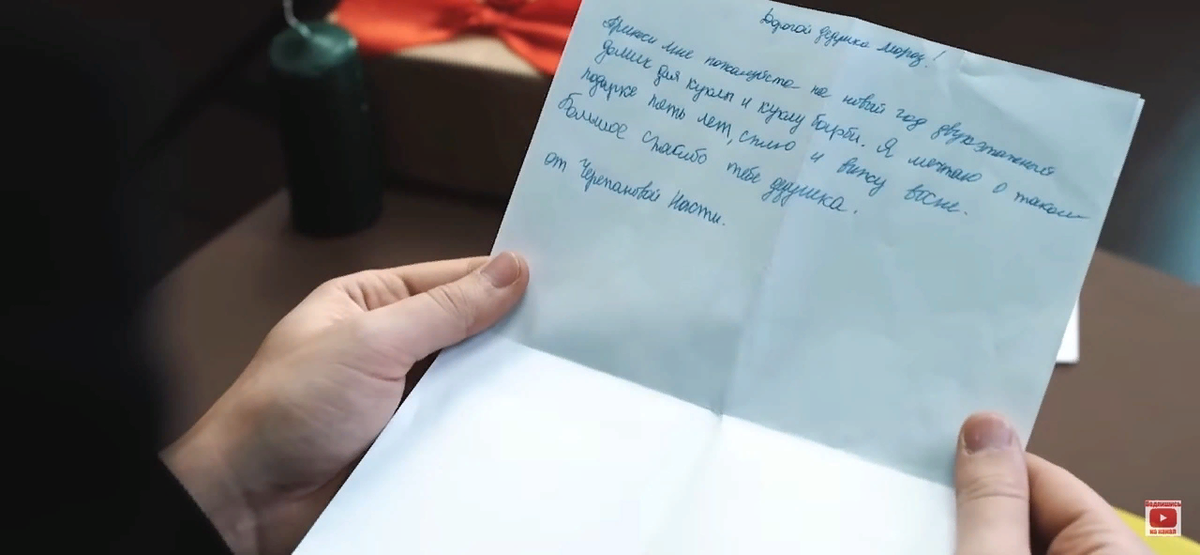 Дорогой дедушка мороз!
Принеси мне пожалуйста на новый год двухэтажный
домик для куклы и куклу барби. Я мечтаю о таком
подарке пять лет, сплю и вижу восне.
Большое спасибо тебе дедушка.
от Черепановой Насти.
Подпишись
на канал